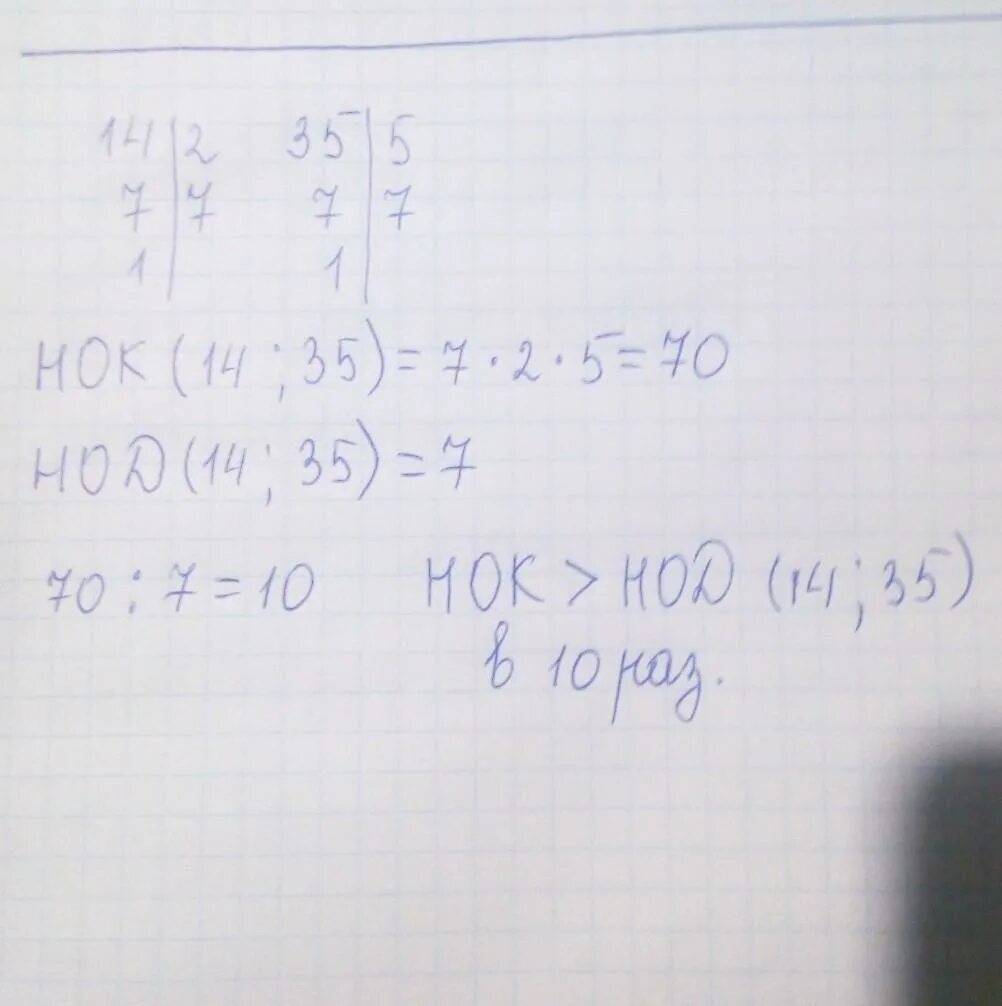 14 | 2 35 | 5
7 | 7 7 | 7
1 | 1 |
НОК (14 ; 35) = 7 · 2 · 5 = 70
НОД (14 ; 35) = 7
70 : 7 = 10 НОК > НОД (14 ; 35)
в 10 раз.